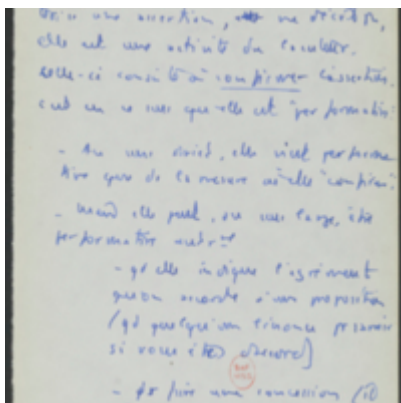 une assertion, ou une décision,
elle est une activité du locuteur.
celle-ci consiste à confirmer l'assertion.
c'est en ce sens qu'elle est "performative"
- Au sens strict, elle n'est performa-
tive que de la mesure où elle "confirme"
- quand elle peut, au sens large, être
performative
- qd elle indique l'agrément
qu'on accorde à une proposition
(qd quelqu'un énonce pr savoir
si vous êtes d'accord)
- pr faire une concession (il